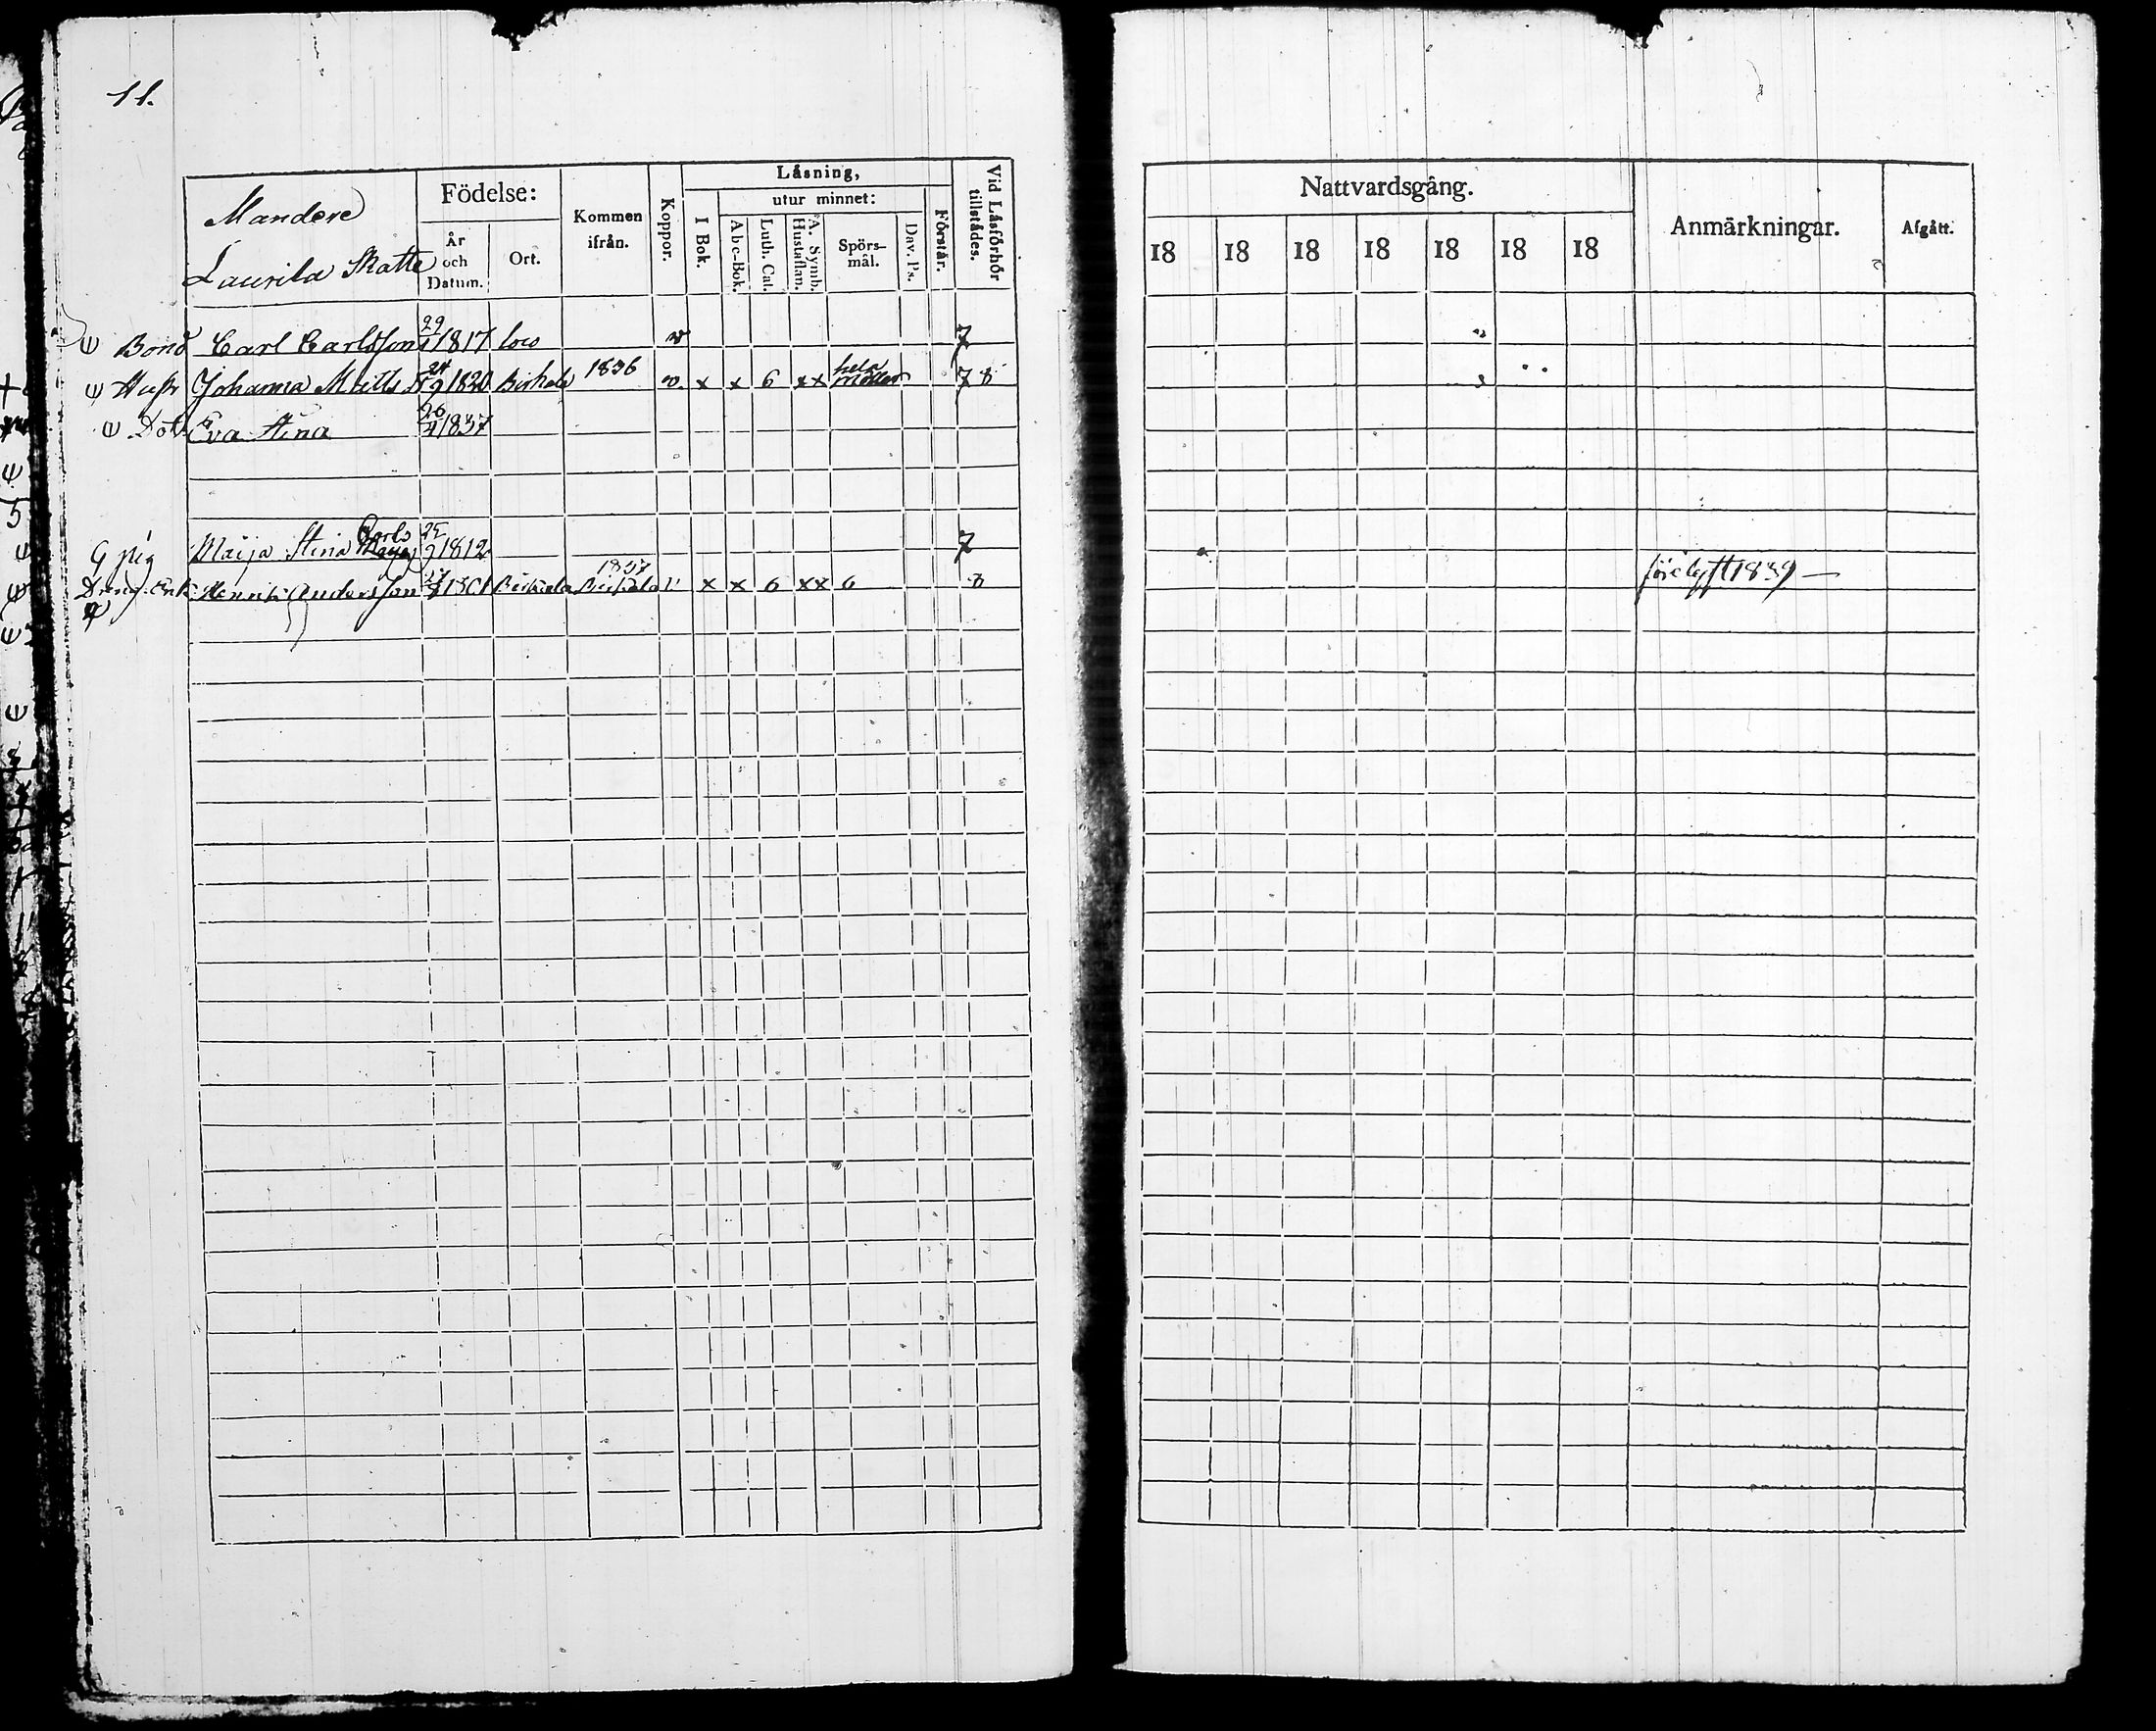 11.
Mandere
Laurila Skatte
Födelse:
År och Datum.
Ort.
Kommen ifrån.
Koppor.
Låsning,
utur minnet:
I Bok.
Abc-Bok.
Luth. Cat.
A. Symb. Hustaflan.
Spörs-mål.
Dav. Ps.
Förstår.
Vid Låsförhör tillstädes.
Nattvardsgång.
18 18 18 18 18 18 18
Anmärkningar.
Afgått.
Bond Carl Carlsson 29 1817 loco v 7
Hustr Johanna Matts dr 24/9 1820 Birkala 1836 v. x x 6 xx hela 7 8
Dot. Eva Stina 26/4 1837
G pig Maija Stina Carls 25/9 1812 7
Dreng. Enk. Henrik Andersson 1801 Birkala 1837 Birkala v x x 6 xx 6 8
1839 —